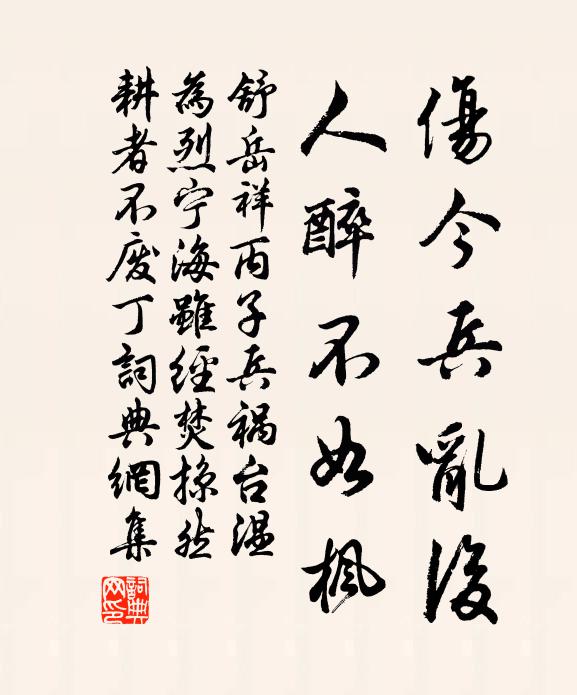 傷今兵亂後
人醉不如楓
舒岳祥丙子兵禍台溫
為烈宁海雖經焚掠然
耕者不废丁詞典網集
詞典网印